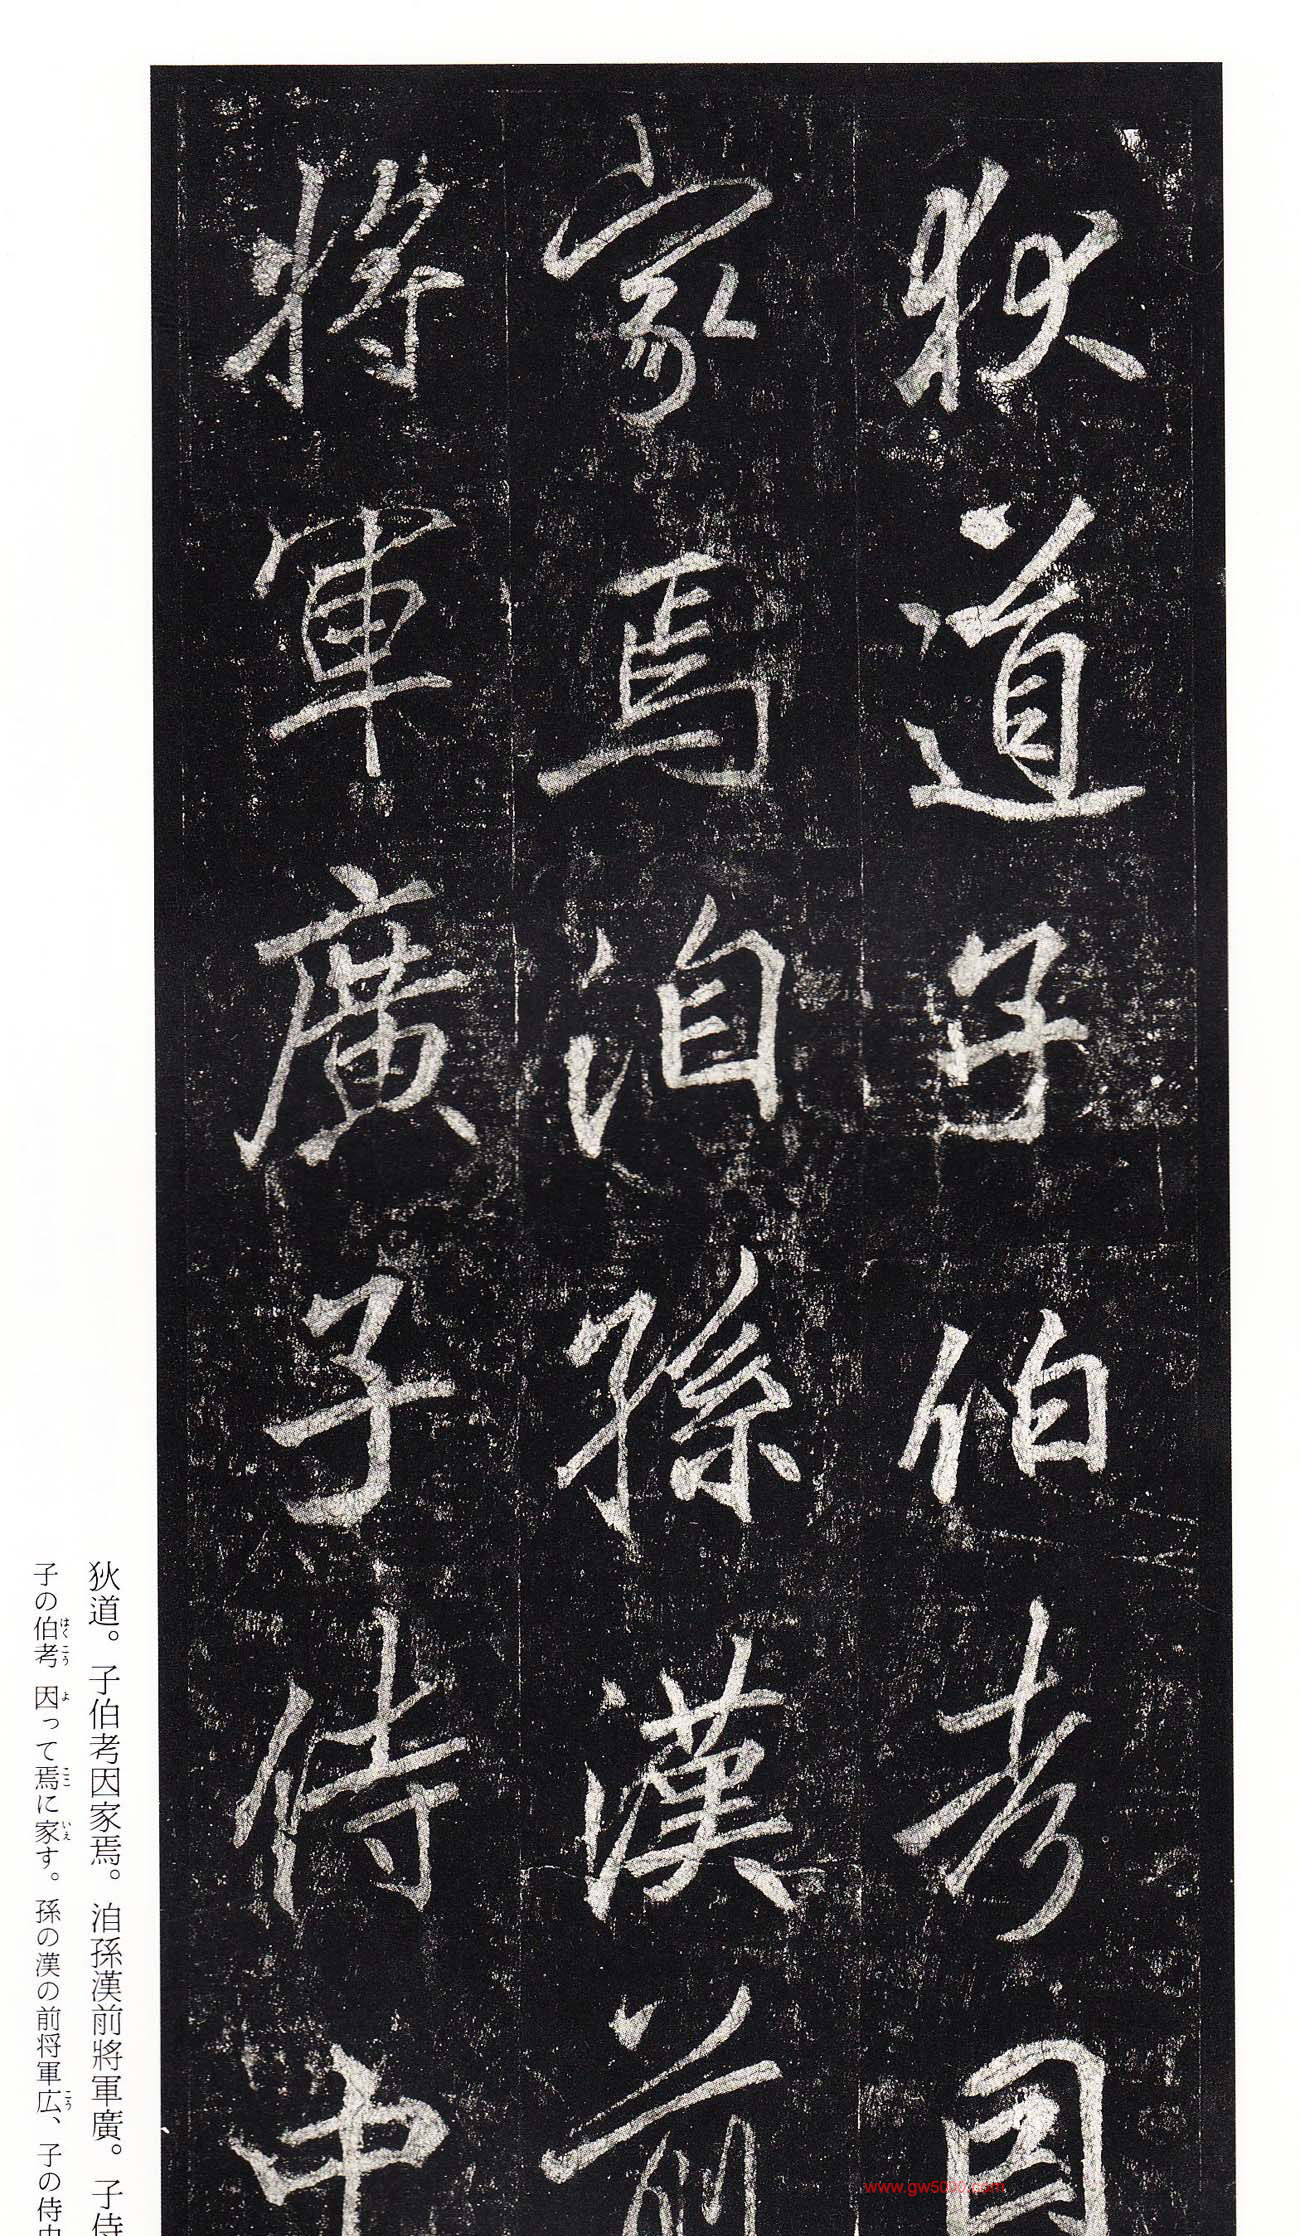 狄道子伯考因
家焉洎孫漢前
將軍廣子侍中
狄道。子伯考因家焉。洎孫漢前將軍廣。子侍
子の伯考因って焉に家す。孫の漢の前将軍広、子の侍中
はくこう よ ここ いえ こう
www.gw5000.com